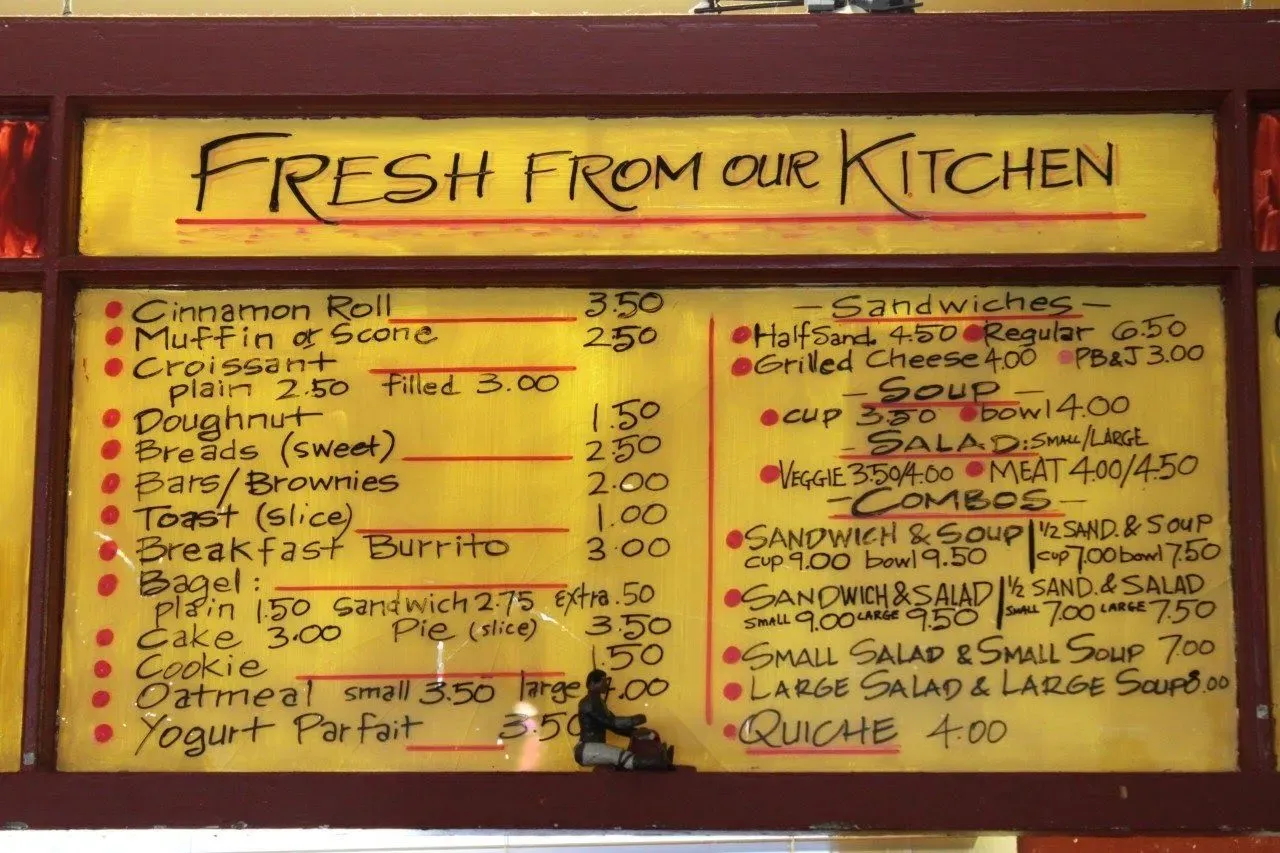 FRESH FROM OUR KITCHEN
Cinnamon Roll 3.50
Muffin or Scone 2.50
Croissant
plain 2.50 filled 3.00
Doughnut 1.50
Breads (sweet) 2.50
Bars/Brownies 2.00
Toast (slice) 1.00
Breakfast Burrito 3.00
Bagel:
plain 1.50 sandwich 2.75 extra .50
Cake 3.00 Pie (slice) 3.50
Cookie 1.50
Oatmeal small 3.50 large 4.00
Yogurt Parfait 3.50
- Sandwiches -
Half Sand. 4.50 Regular 6.50
Grilled Cheese 4.00 PB&J 3.00
- SOUP -
cup 3.50 bowl 4.00
- SALAD: SMALL/LARGE
VEGGIE 3.50/4.00 MEAT 4.00/4.50
- COMBOS -
SANDWICH & SOUP | 1/2 SAND. & SOUP
cup 9.00 bowl 9.50 | cup 7.00 bowl 7.50
SANDWICH & SALAD | 1/2 SAND. & SALAD
SMALL 9.00 LARGE 9.50 | SMALL 7.00 LARGE 7.50
SMALL SALAD & SMALL SOUP 7.00
LARGE SALAD & LARGE SOUP 8.00
QUICHE 4.00